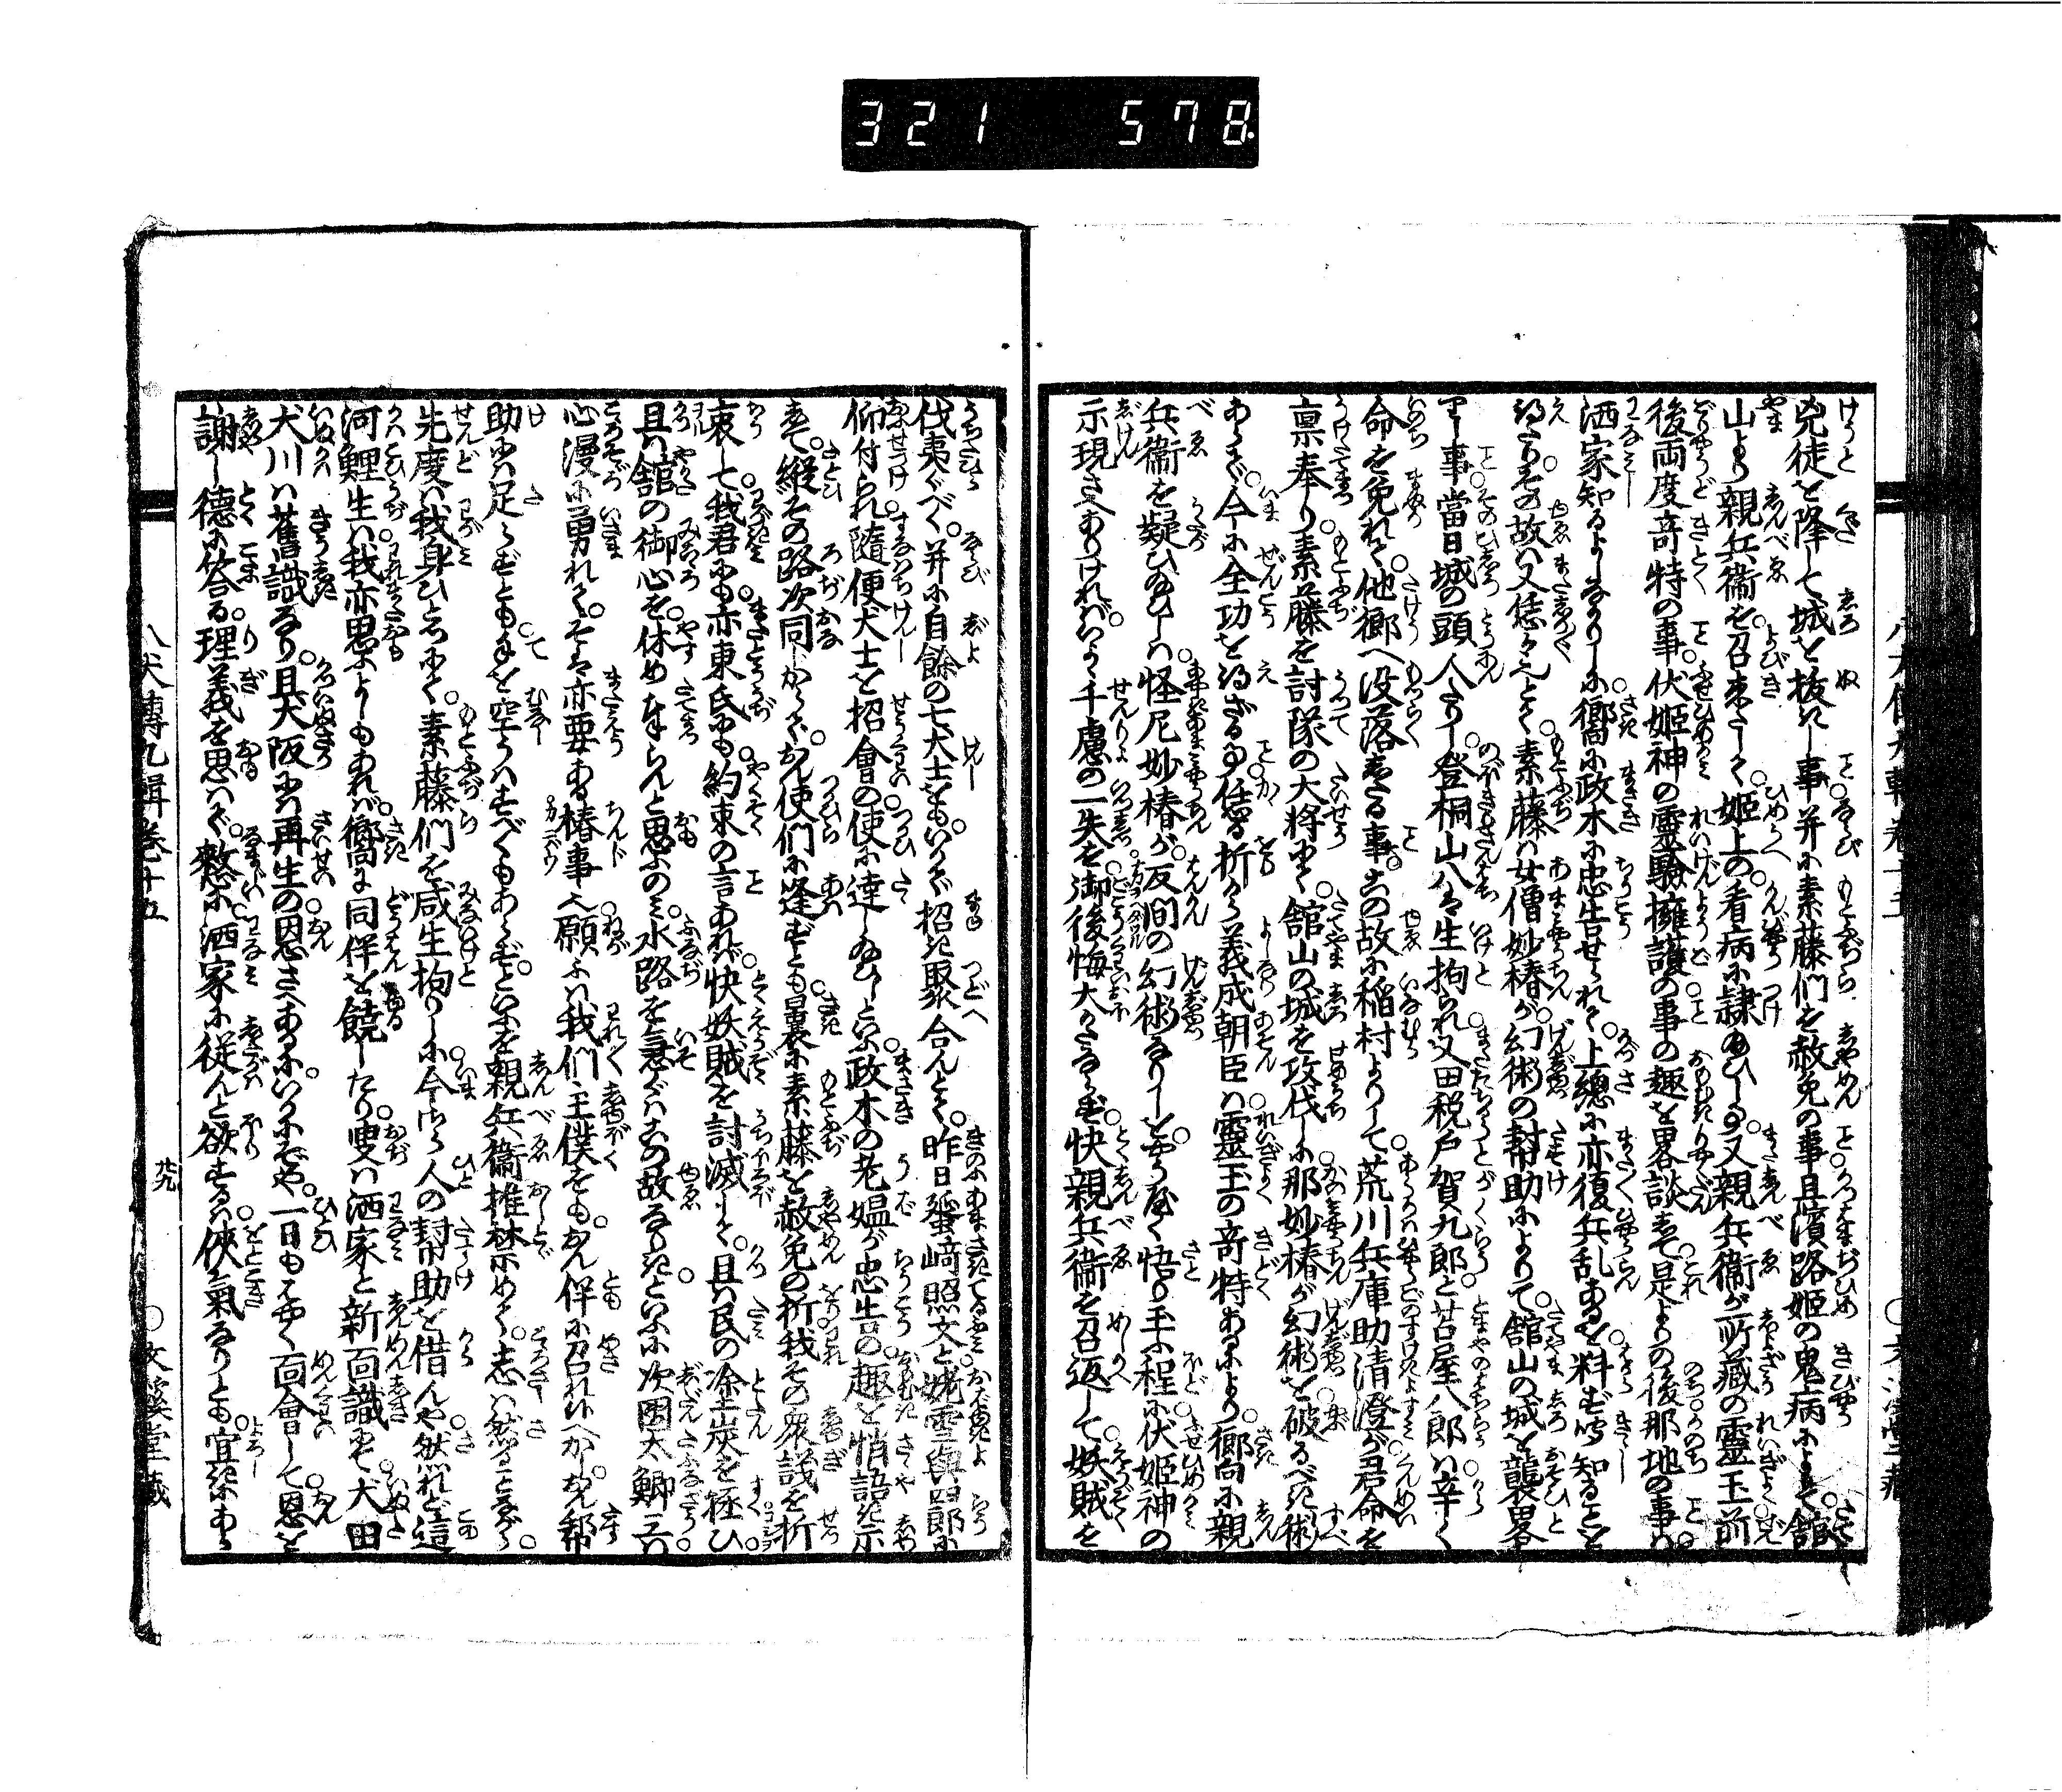 321 578.
兇徒を降して城を抜きし事并に素藤們を赦免の事且濱路姫の鬼病によそ館
山より親兵衞を召来さして姫上の看病に隷ゐひし事又親兵衞が所藏の靈玉前
後両度竒特の事伏姫神の靈驗擁護の事の趣を畧談をそ是よりの後那地の事ハ
洒家知るよしなかりしに嚮に政木に忠告せられて上總に亦復兵乱あるを料ず聞知ることを
得たりその故ハ又恁々とて素藤ハ女僧妙椿が幻術の幇助によりて館山の城を襲畧
りし事當日城の頭人たりし登桐山八ハ生拘られ又田税戸賀九郎と苫屋八郎ハ辛く
命を免れて他郷へ没落しぬる事この故に稲村よりして荒川兵庫助清澄が君命を
禀奉り素藤を討隊の大将にて館山の城を攻伐しに那妙椿が幻術を破るべき術
あらざれば今に全功を得ざる事恁る折から義成朝臣ハ靈玉の竒特あるにより嚮向に親
兵衞を疑ひゐひしハ怪尼妙椿が反間の幻術なりしをやうやく悟り玉ふ程に伏姫神の
示現さへありければいよゝ千慮の一失を御後悔大かたならず快親兵衞を召返して妖賊を
伐夷ぐべく并に自餘の七犬士をもいかで招き聚合んとて昨日蜑﨑照文と姥雪與四郎に
仰付られ隨便犬士を招會の使に達しゐひしとぞ政木の老媼が忠告の趣を悄語き示
して縦その路次同じからでおん使們に逢ずとも曩に素藤を赦免の折我その衆議を折
衷して我君にも亦東氏にも約束の言あれば快妖賊を討滅して且ハ民の塗炭を拯ひ
且ハ館の御心を休めまゐらんと思ふのミ水路を急ぐハこの故なりきといふに次團太鯽三ハ
心漫に勇れてそハ亦要ある椿事へ願ふハ我們主僕をもおん伴に召れねかしおん幇
助にハ足らずとも手を空うハすべくもあらずといふを親兵衞推禁めて志ハ然ることながら
先度ハ我身ひとつにて素藤們を咸生拘りしに今さら人の幇助を借んや然れど這
河鯉生ハ我亦思ふよしもあれば嚮に同伴を饒したり叟ハ洒家と新面識にて犬田
犬川ハ舊識なり且犬阪にハ再生の恩さへあるにいかにぞや一日もはやく面會して恩を
謝し德に答る理義を思ハで憖に洒家に從んと欲するハ侠氣なりとも宜しからねにあら
八犬傳九輯巻十五
文溪堂藏